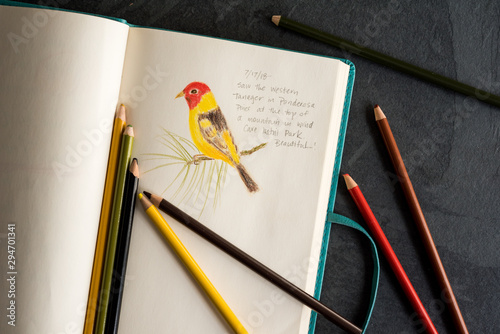 7/17/18
Saw the western
tanager in Ponderosa
Pine at the top of
a mountain in Wind
Cave Natnl Park.
Beautiful!
Adobe Stock | #294701341